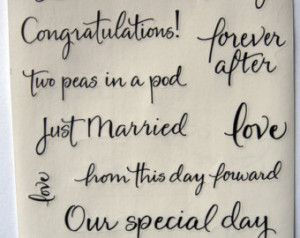 Congratulations!
forever
after
two peas in a pod
Just Married
love
love
from this day forward
Our special day